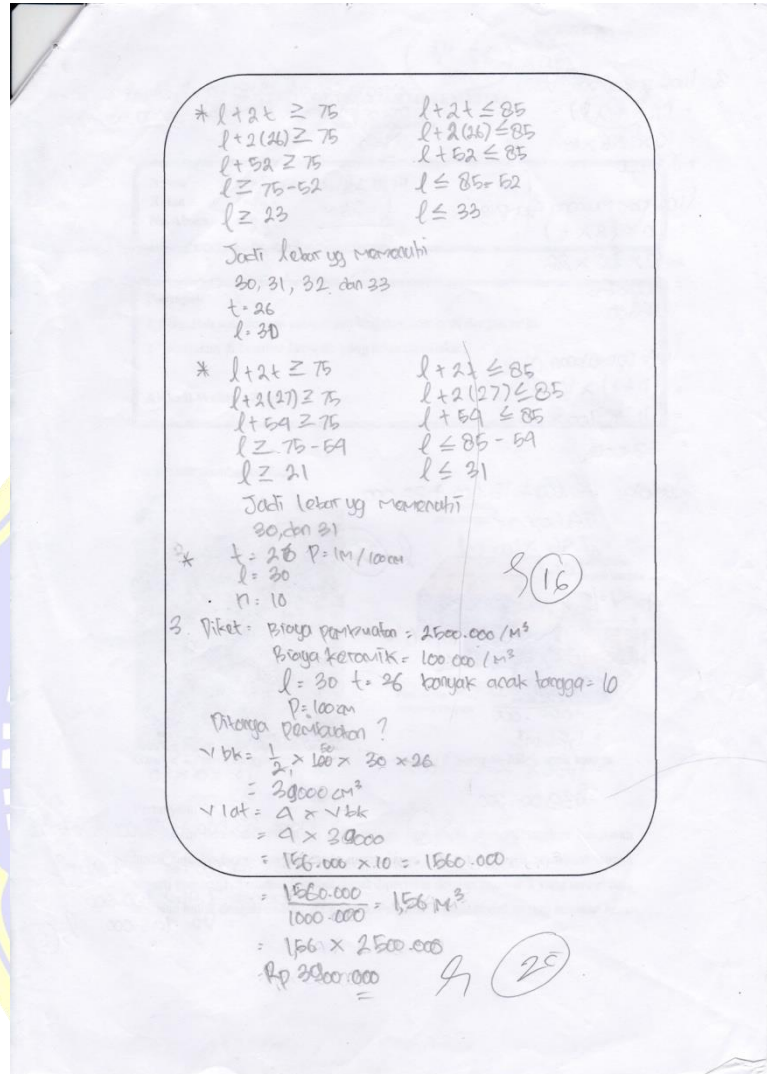 * l+2t ≥ 75 l+2t ≤ 85
l+2(26) ≥ 75 l+2(26) ≤ 85
l+52 ≥ 75 l+52 ≤ 85
l ≥ 75-52 l ≤ 85-52
l ≥ 23 l ≤ 33
Jadi lebar yg memenuhi
30, 31, 32 dan 33
t = 26
l = 30
* l+2t ≥ 75 l+2t ≤ 85
l+2(27) ≥ 75 l+2(27) ≤ 85
l+54 ≥ 75 l+54 ≤ 85
l ≥ 75-54 l ≤ 85-54
l ≥ 21 l ≤ 31
Jadi lebar yg memenuhi
30, dan 31
* t = 26 P = 1m/100cm
l = 30
n = 10
16
3. Diket = Biaya pembuatan = 2500.000 /m³
Biaya keramik = 100.000 /m³
l = 30 t = 26 banyak anak tangga = 10
P = 100 cm
Ditanya pembuatan ?
V bk = 1/2 × 100 × 30 × 26
= 39000 cm³
V lat = 4 × Vbk
= 4 × 39000
= 156.000 × 10 = 1560.000
= 1560.000 / 1000.000 = 1,56 M³
= 1,56 × 2500.000
Rp 3900.000